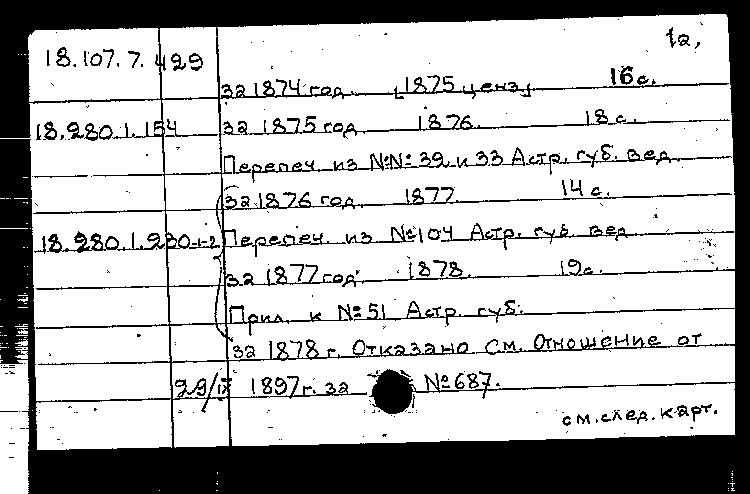 1а.
18.107.7.429
за 1874 год. [1875 ценз] 16 с.
18.280.1.154 за 1875 год 1876. 18 с.
Перепеч. из №№ 32 и 33 Астр. губ. вед.
за 1876 год. 1877. 14 с.
18.280.1.230-1-2 Перепеч. из №104 Астр. губ. вед
за 1877 год. 1878. 19с.
Прил. к №51 Астр. губ.
за 1878 г. Отказано см. Отношение от
29/IX 1897г. за №687.
см. след. карт.